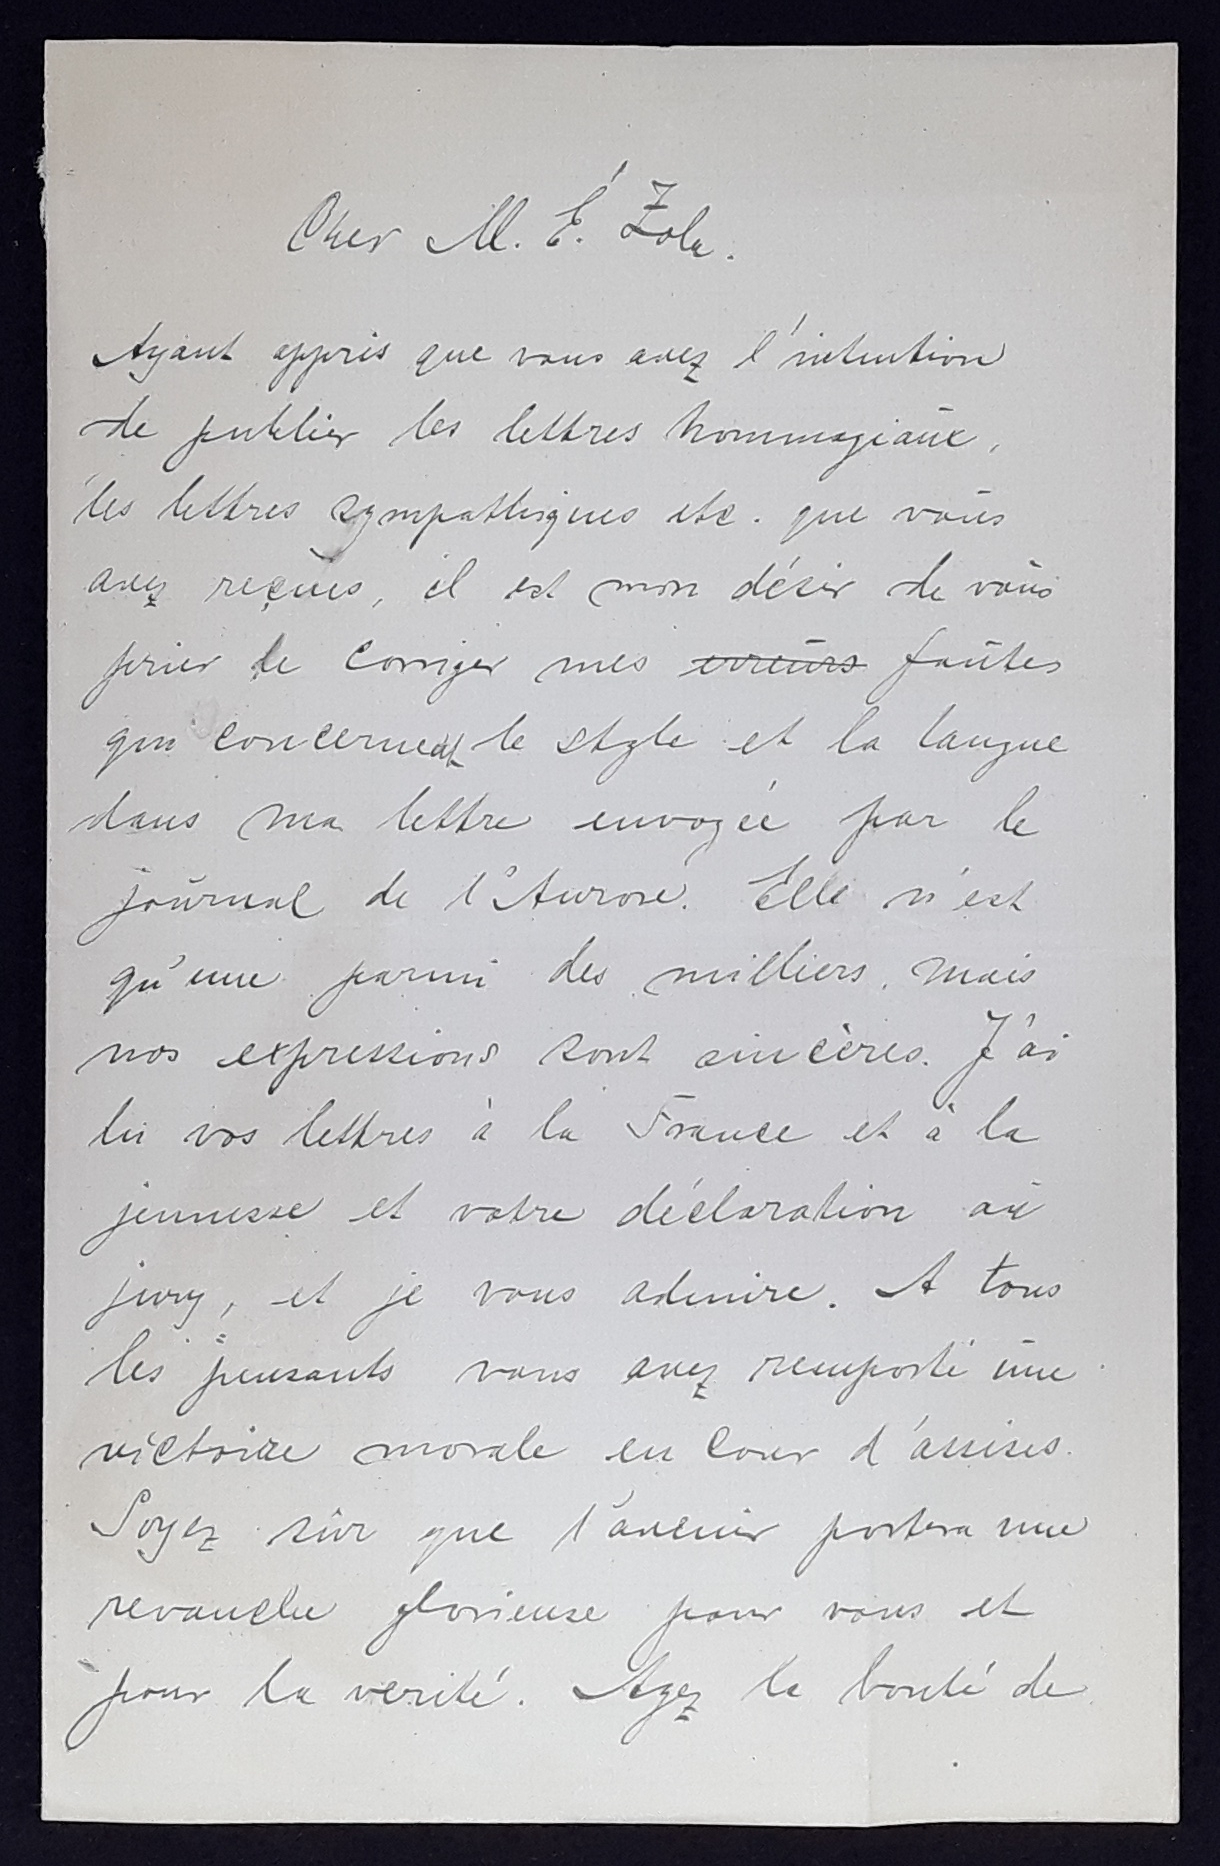 Cher M. É. Zola.
Ayant appris que vous avez l'intention
de publier les lettres hommagiaux,
les lettres sympathiques etc. que vous
avez reçues, il est mon désir de vous
prier de corriger mes erreurs fautes
qui concernent le style et la langue
dans ma lettre envoyée par le
journal de l'Aurore. Elle n'est
qu'une parmi des milliers, mais
nos expressions sont sincères. J'ai
lu vos lettres à la France et à la
jeunesse et votre déclaration au
jury, et je vous admire. A tous
les pensants vous avez remporté une
victoire morale en cour d'assises.
Soyez sûr que l'avenir portera une
revanche glorieuse pour vous et
pour la verité. Ayez la bonté de